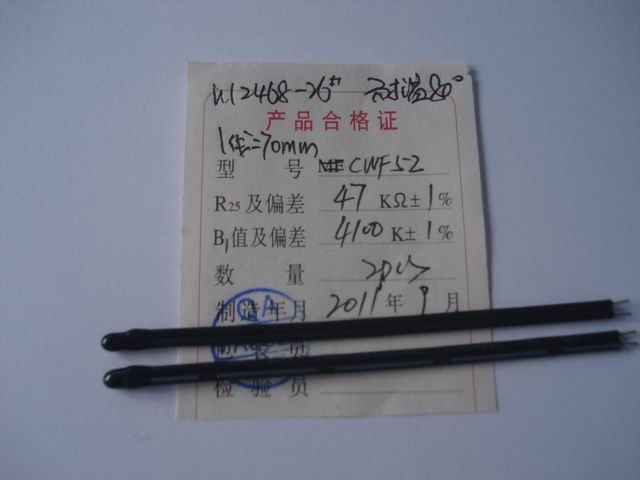 UL2468-26# 耐温80°
产品合格证
1线=70mm
型 号 MF CWF52
R25及偏差 47 KΩ± 1%
B值及偏差 4100 K± 1%
数 量 2pcs
制造年月 2011年9月
QA
检验员